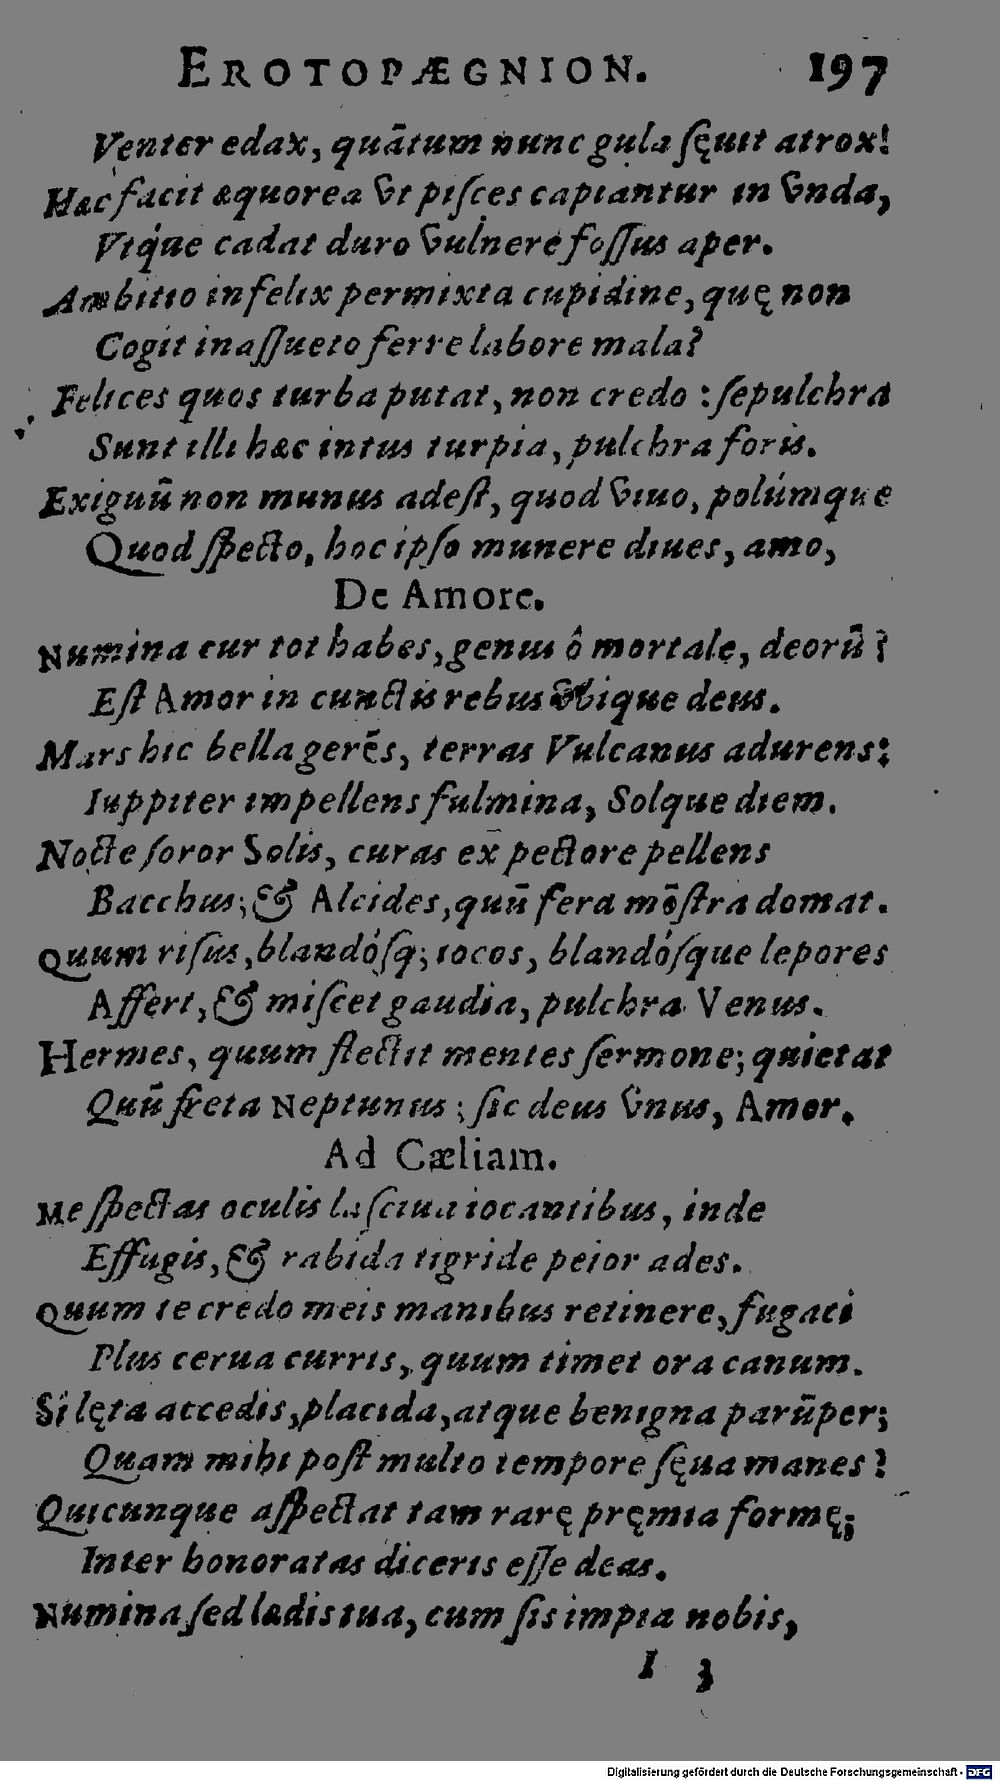 EROTOPÆGNION. 197
Venter edax, quātum nunc gula ſęuit atrox!
Hæc facit æquorea vt piſces capiantur in vnda,
Vtq́ue cadat duro vulnere foſſus aper.
Ambitio infelix permixta cupidine, quę non
Cogit inaſſueto ferre labore mala?
Felices quos turba putat, non credo : ſepulchra
Sunt illi hæc intus turpia, pulchra foris.
Exiguū non munus adeſt, quod viuo, polúmque
Quod ſpecto, hoc ipſo munere diues, amo,
De Amore.
Numina cur tot habes, genus ô mortale, deorū?
Eſt Amor in cunctis rebus vbique deus.
Mars hic bella gerēs, terras Vulcanus adurens:
Iuppiter impellens fulmina, Solque diem.
Nocte ſoror Solis, curas ex pectore pellens
Bacchus; & Alcides, quū fera mōſtra domat.
Quum riſus, blandóſq; iocos, blandóſque lepores
Affert, & miſcet gaudia, pulchra Venus.
Hermes, quum flectit mentes ſermone; quietat
Quū freta Neptunus; ſic deus vnus, Amor.
Ad Cæliam.
Me ſpectas oculis laſciua iocantibus, inde
Effugis, & rabida tigride peior ades.
Quum te credo meis manibus retinere, fugaci
Plus cerua curris, quum timet ora canum.
Si lęta accedis, placida, atque benigna parūper;
Quam mihi poſt multo tempore ſęua manes?
Quicunque aſpectat tam rarę pręmia formę;
Inter honoratas diceris eſſe deas.
Numina ſed lædis tua, cum ſis impia nobis,
I 3
Digitalisierung gefördert durch die Deutsche Forschungsgemeinschaft - DFG